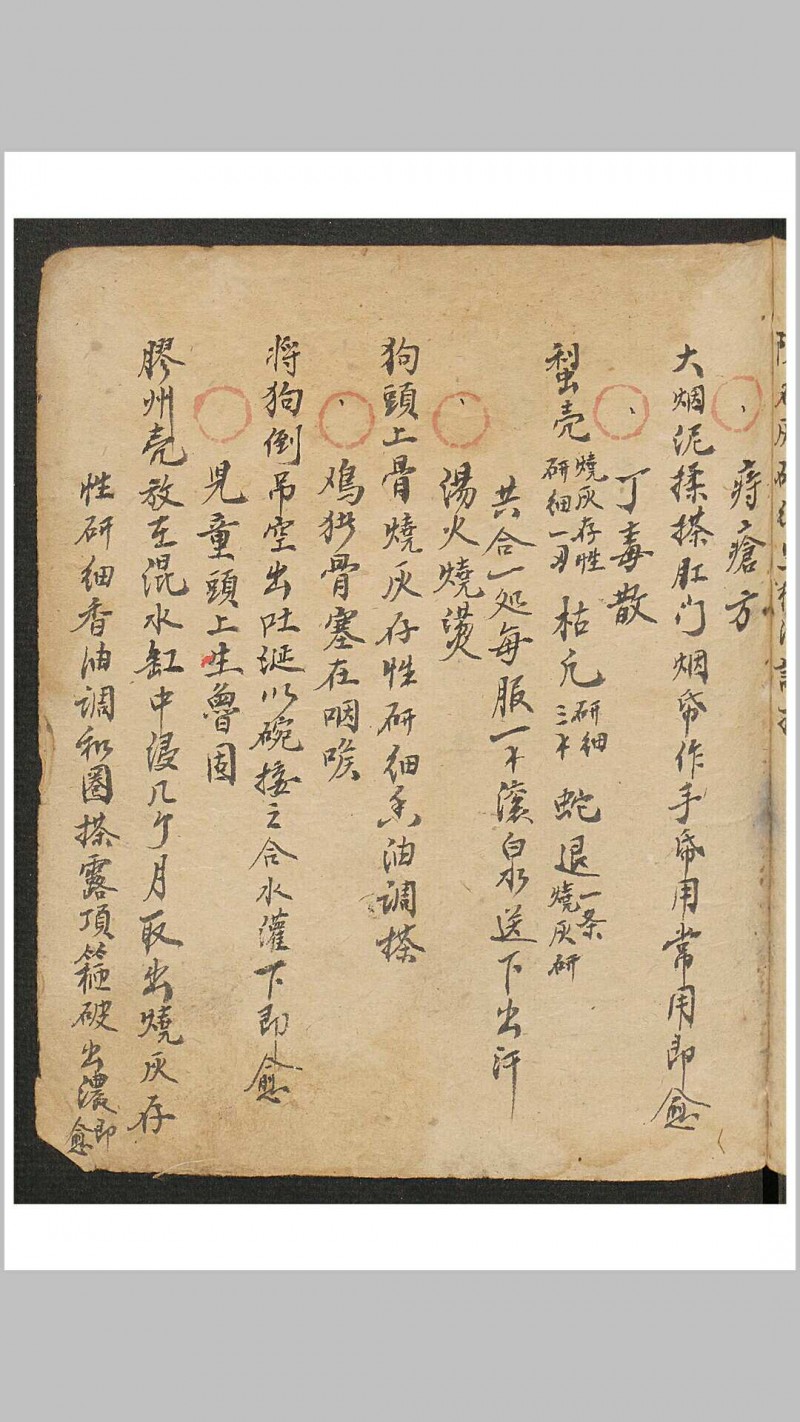 痔瘡方
大烟泥揉搽肛门烟帋作手帋用常用即愈
丁毒散
壳燒灰存性研細一
枯 研細三 蛇退一条燒灰研
共合一処每服一 滾白水送下出汗
湯火燒燙
狗頭上骨燒灰存性研细香油調搽
鸡 骨塞在咽喉
将狗倒吊空出吐涎以碗接之合水灌下即愈
児童頭上生魯固
膠州壳放在混水缸中浸几个月取出燒灰存
性研细香油調和圈搽露頂 破出濃即愈